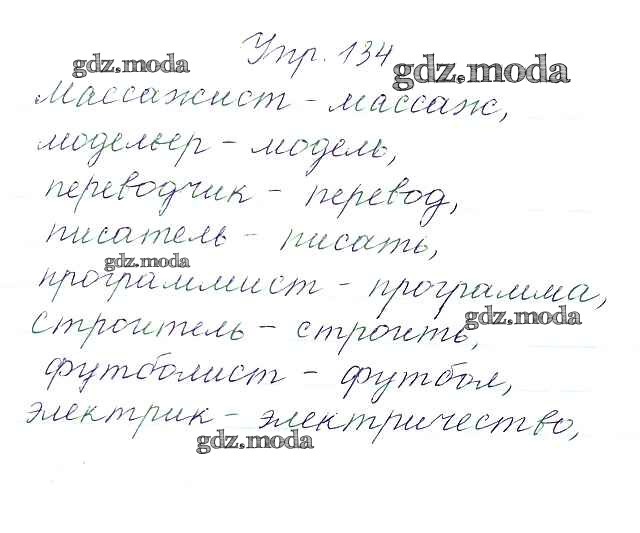 Упр. 134
gdz.moda
gdz.moda
Массажист - массаж,
модельер - модель,
переводчик - перевод,
писатель - писать,
gdz.moda
программист - программа,
gdz.moda
строитель - строить,
футболист - футбол,
электрик - электричество,
gdz.moda